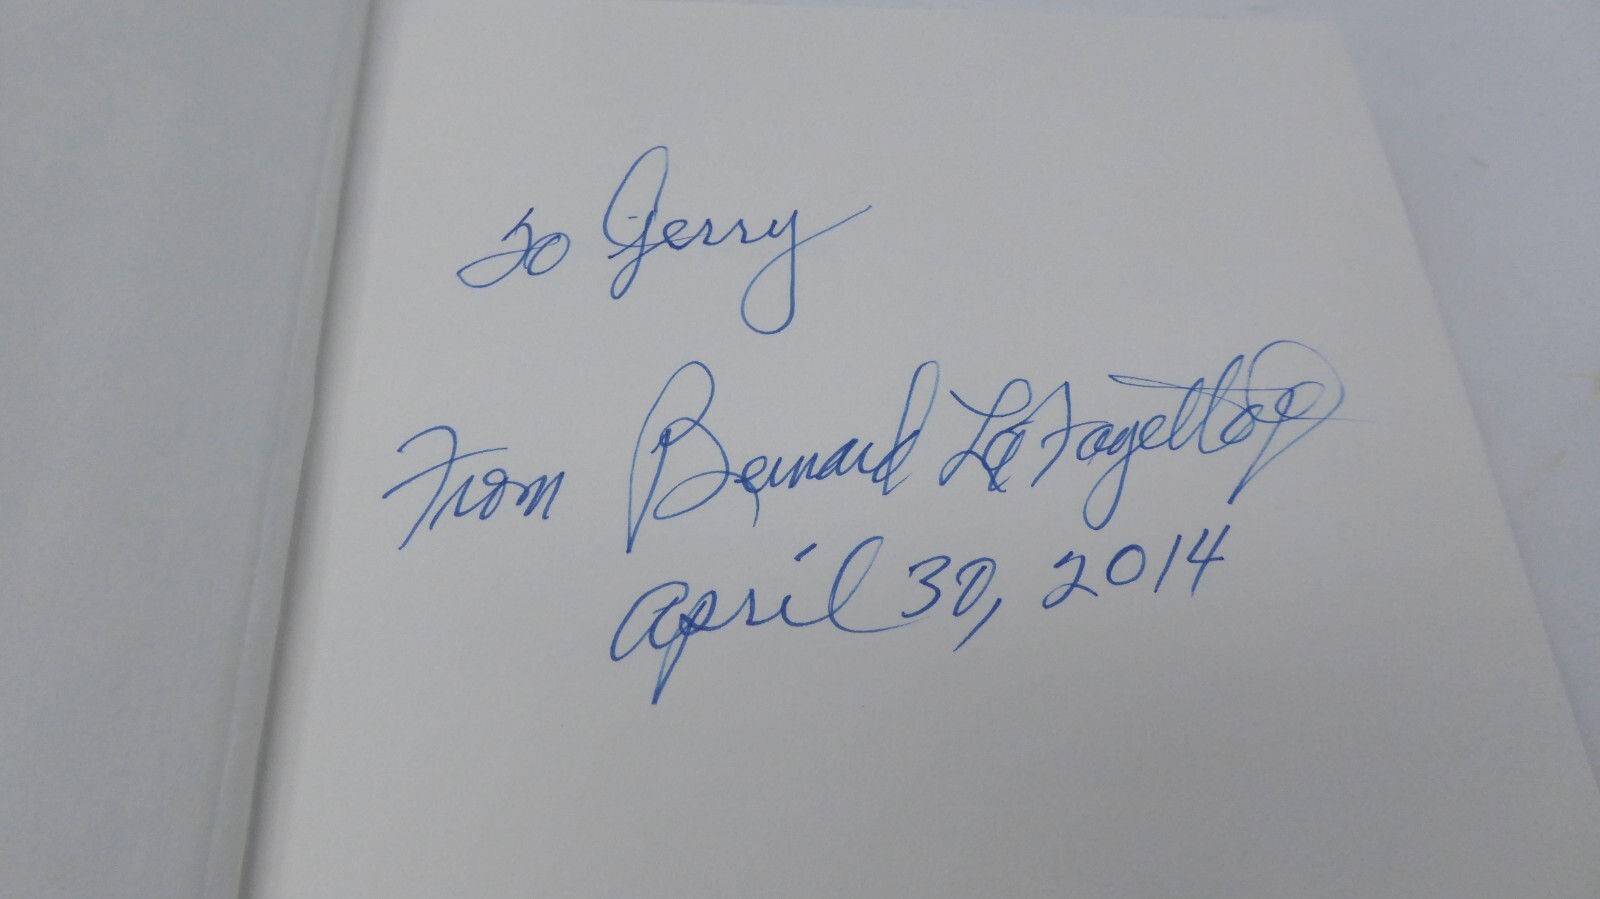 To Jerry
From Bernard LaFayette
April 30, 2014